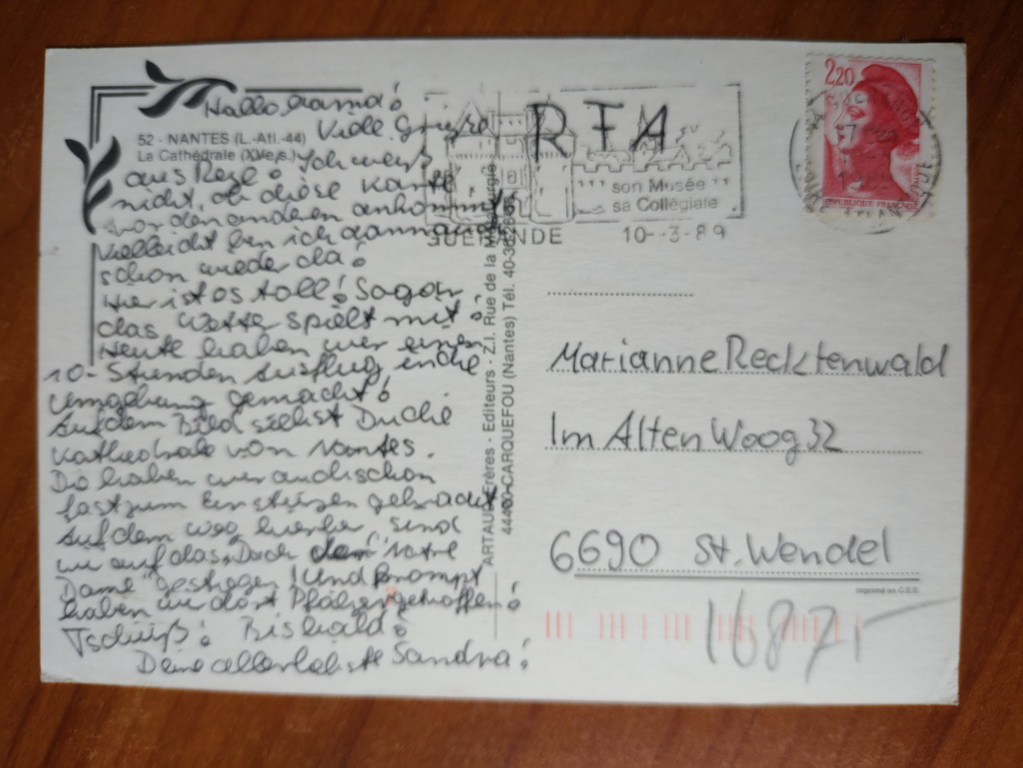 Hallo
Viele Grüße
52 - NANTES (L.-Atl. -44)
La Cathédrale (XVe s.)
aus Reze! Ich weiß
nicht, ob diese Karte
vor den anderen ankommt
vielleicht bin ich
schon wieder da!
Hier ist es toll! Sogar
das Wetter spielt mit!
Heute haben wir einen
10-Stunden Ausflug in die
Umgebung gemacht!
Auf dem Bild siehst Du die
Kathedrale von Nantes.
Die haben wir auch schon
fast zum Einstürzen gebracht
Auf dem Weg hierher, sind
wir auf das "Dach der Notre
Dame" gestiegen! Und prompt
haben wir dort Pfälzer getroffen!
Tschüß! Bis bald!
Deine allerliebste Sandra!
ARTAUD Frères - Editeurs - Z.I. Rue de la Métallurgie
44470 CARQUEFOU (Nantes) Tél. 40-30
RFA
son Musée
sa Collégiale
GUERANDE 10--3-89
2,20
REPUBLIQUE FRANÇAISE
Marianne Recktenwald
Im Alten Woog 32
6690 St. Wendel
Imprimé en C.E.E.
16875